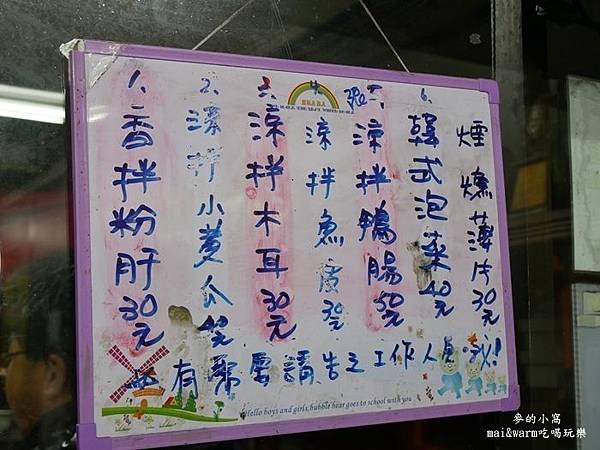 1. 香拌粉肝30元
2. 涼拌小黃瓜
3. 涼拌木耳30元
4. 涼拌魚皮
涼拌鴨腸50元
6. 韓式泡菜40元
煙燻薄片30元
有需要請告之工作人員
Hello boys and girls, bubble bear goes to school with you
麥的小窩
mai&warm吃喝玩樂